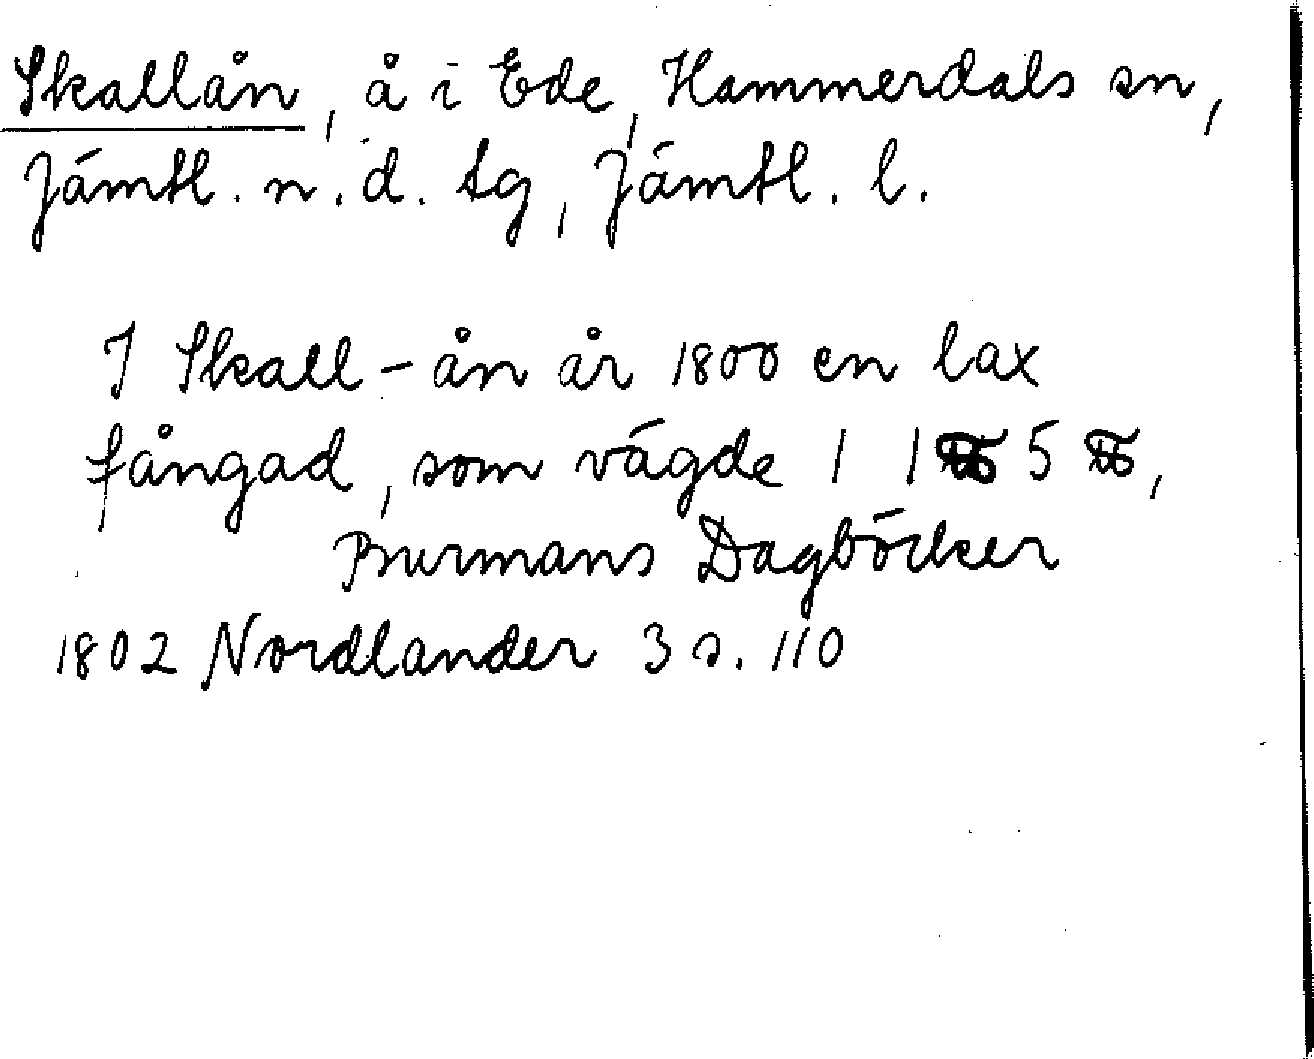 Skallån, å i Ede, Hammerdals sn,
Jämtl. n. d. tg, Jämtl. l.
I Skall-ån år 1800 en lax
fångad, som vägde 1 1 ℔ 5 ℔,
Burmans Dagböcker
1802 Nordlander 3 s. 110